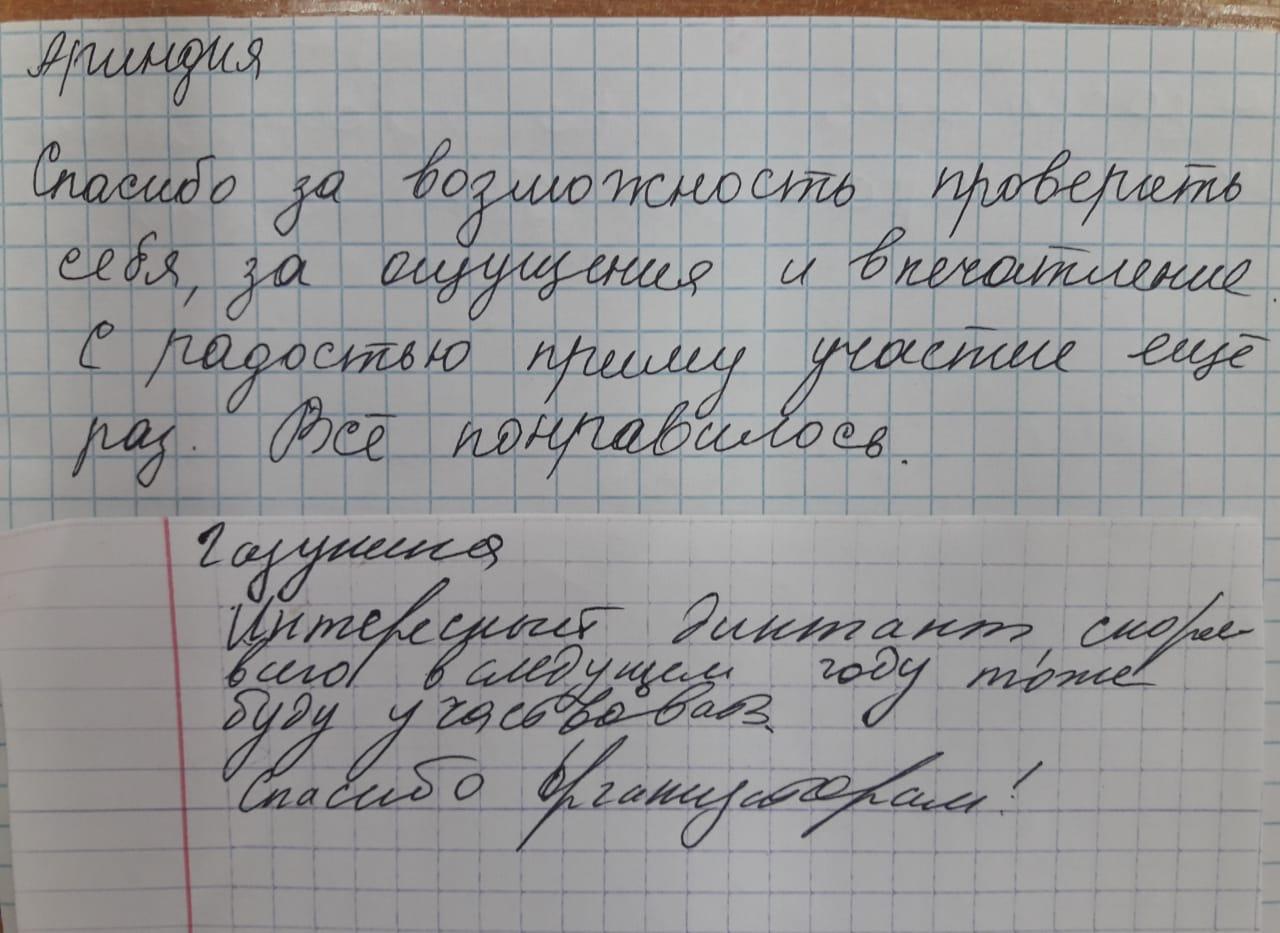 Ариндия
Спасибо за возможность проверить
себя, за ощущения и впечатление.
С радостью приму участие ещё
раз. Всё понравилось.
Газунина
Интересный диктант, скорее
всего в следущем году тоже
буду участвовать.
Спасибо организаторам!